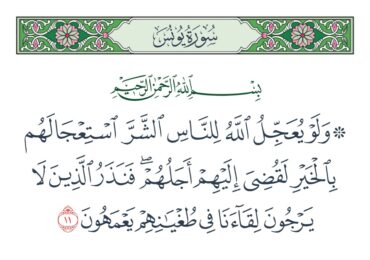 سُورَةُ يُونُسَ
بِسْمِ ٱللَّهِ ٱلرَّحْمَٰنِ ٱلرَّحِيمِ
۞ وَلَوْ يُعَجِّلُ ٱللَّهُ لِلنَّاسِ ٱلشَّرَّ ٱسْتِعْجَالَهُم
بِٱلْخَيْرِ لَقُضِىَ إِلَيْهِمْ أَجَلُهُمْ ۖ فَنَذَرُ ٱلَّذِينَ لَا
يَرْجُونَ لِقَآءَنَا فِى طُغْيَٰنِهِمْ يَعْمَهُونَ ١١